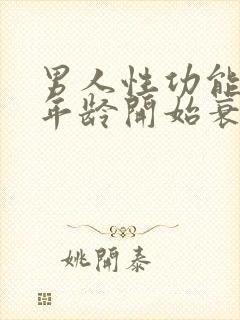 男人性功能
年龄開始衰
姚開泰